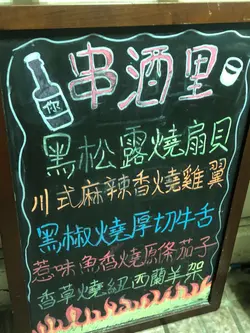 串酒里
黑松露燒扇貝
川式麻辣香燒雞翼
黑椒燒厚切牛舌
惹味魚香燒原條茄子
香草燒紐西蘭羊架